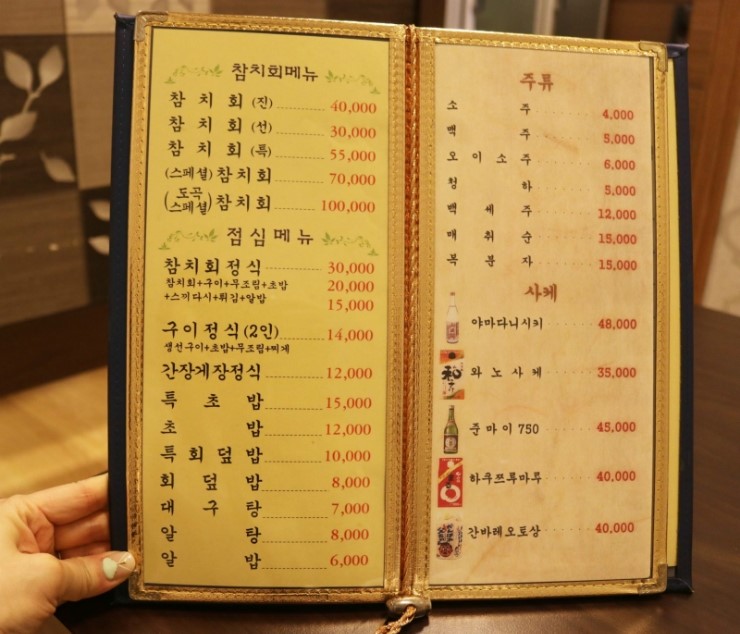 참치회메뉴
참 치 회 (진) 40,000
참 치 회 (선) 30,000
참 치 회 (특) 55,000
(스페셜) 참치회 70,000
(도곡 스페셜) 참치회 100,000
점심메뉴
참치회정식 30,000
참치회+구이+무조림+초밥 20,000
+스끼다시+튀김+알밥 15,000
구이정식 (2인) 14,000
생선구이+초밥+무조림+찌게
간장게장정식 12,000
특 초 밥 15,000
초 밥 12,000
특 회 덮 밥 10,000
회 덮 밥 8,000
대 구 탕 7,000
알 탕 8,000
알 밥 6,000
주류
소 주 4,000
맥 주 5,000
오 이 소 주 6,000
청 하 5,000
백 세 주 12,000
매 취 순 15,000
복 분 자 15,000
사케
야마다니시키 48,000
와 노 사 케 35,000
준 마 이 750 45,000
하쿠쯔루마루 40,000
간바레오토상 40,000